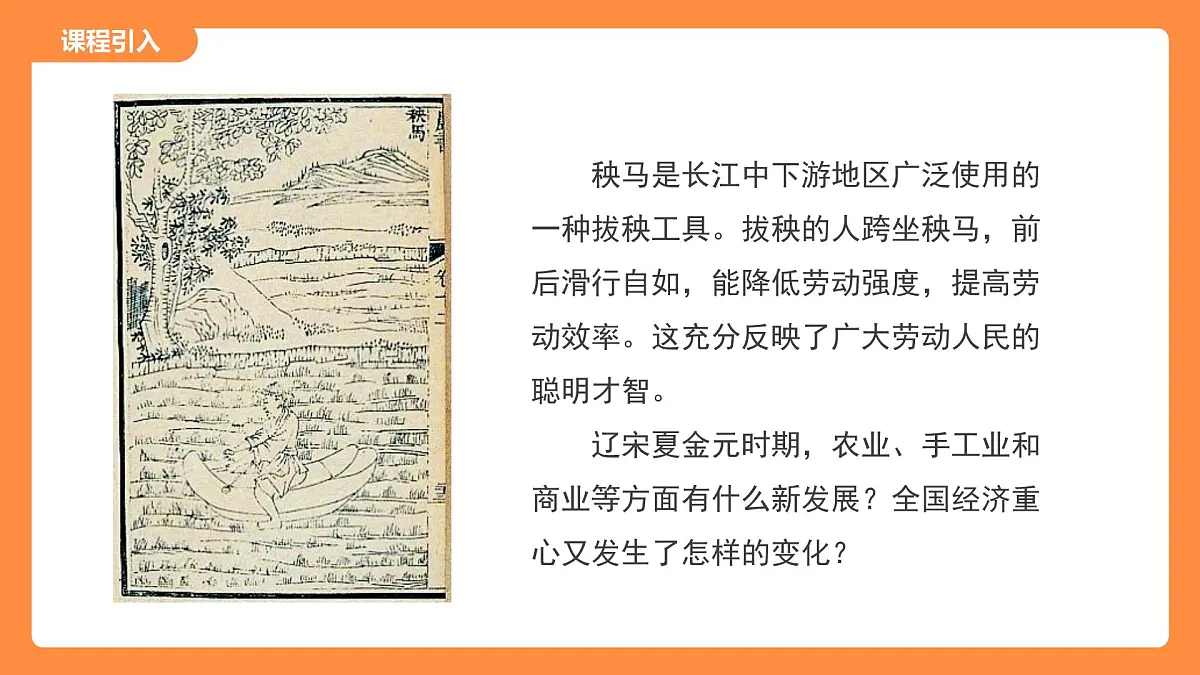 课程引入
秧馬
秧马是长江中下游地区广泛使用的
一种拔秧工具。拔秧的人跨坐秧马，前
后滑行自如，能降低劳动强度，提高劳
动效率。这充分反映了广大劳动人民的
聪明才智。
辽宋夏金元时期，农业、手工业和
商业等方面有什么新发展？全国经济重
心又发生了怎样的变化？